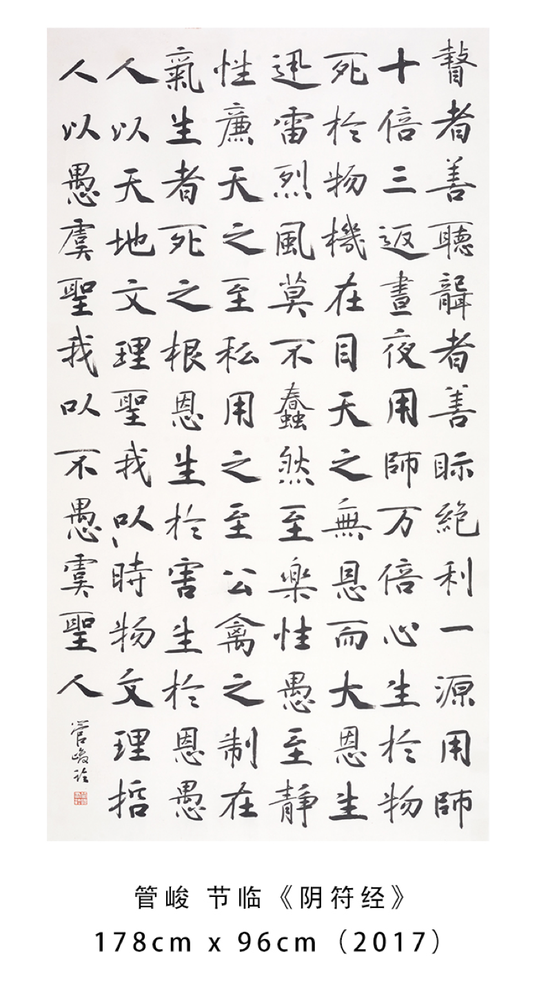 瞽者善聽聾者善眎絕利一源用師
十倍三返晝夜用師万倍心生於物
死於物機在目天之無恩而大恩生
迅雷烈風莫不蠢然至樂性愚至靜
性廉天之至私用之至公禽之制在
氣生者死之根恩生於害生於恩愚
人以天地文理聖我以時物文理哲
人以愚虞聖我以不愚虞聖人
管峻临
管峻 节临《阴符经》
178cm x 96cm（2017）